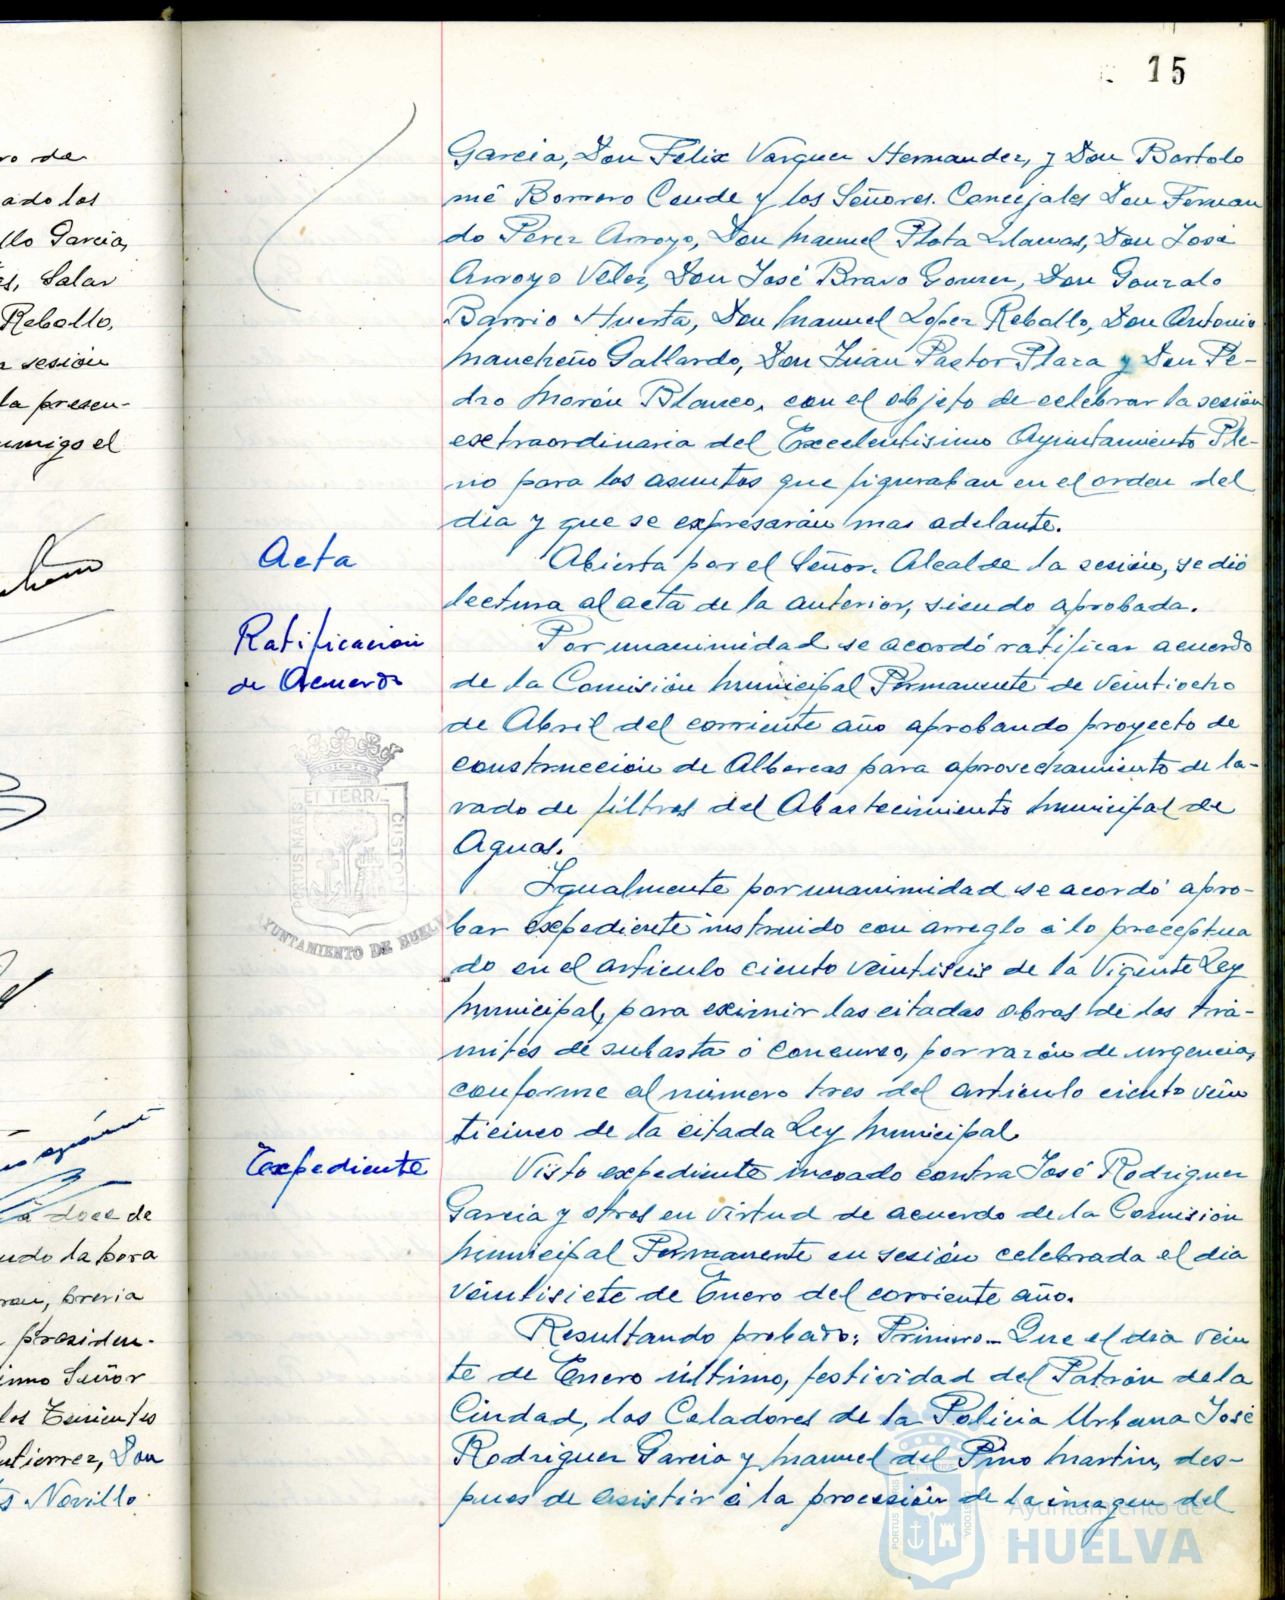 15
ro de
ado los
llo Garcia,
es, Salar
Rebollo,
n sesión
la presen-
nmigo el
a doce de
ndo la hora
ron, previa
presiden-
imo Señor
los Tenientes
utierrez, Don
s Novillo
Garcia, Don Felix Varguez Hernandez, y Don Bartolo
mé Borrero Conde y los Señores. Concejales Don Fernan
do Perez Arroyo, Don Manuel Plata Llamas, Don José
Arroyo Velez, Don José Bravo Gomez, Don Gonzalo
Barrio Huerta, Don Manuel López Rebollo, Don Antonio
Mancheño Gallardo, Don Juan Pastor Plaza y Don Pe-
dro Morón Blanco, con el objeto de celebrar la sesión
extraordinaria del Excelentisimo Ayuntamiento Ple-
no para los asuntos que figuraban en el orden del
dia y que se expresarán mas adelante.
Acta
Abierta por el Señor. Alcalde la sesión, se dió
lectura al acta de la anterior, siendo aprobada.
Ratificacion
de Acuerdo
Por unanimidad se acordó ratificar acuerdo
de la Comisión Municipal Permanente de veintiocho
de Abril del corriente año aprobando proyecto de
construcción de Albercas para aprovechamiento de la-
vado de filtros del Abastecimiento Municipal de
Aguas.
Igualmente por unanimidad se acordó apro-
bar expediente instruido con arreglo á lo preceptua
do en el articulo ciento veintiseis de la Vigente Ley
Municipal, para eximir las citadas obras de los trá-
mites de subasta ó concurso, por razón de urgencia,
conforme al número tres del articulo ciento vein
ticinco de la citada Ley Municipal.
Expediente
Visto expediente incoado contra José Rodriguez
Garcia y otros en virtud de acuerdo de la Comisión
Municipal Permanente en sesión celebrada el dia
veintisiete de Enero del corriente año.
Resultando probado: Primero.- Que el dia vein
te de Enero último, festividad del Patrón de la
Ciudad, los Celadores de la Policia Urbana José
Rodriguez Garcia y Manuel del Pino Martin, des-
pues de asistir á la procesión de la imagen del
PORTUS MARIS ET TERRAE CUSTODIA
AYUNTAMIENTO DE HUELVA
Ayuntamiento de
HUELVA